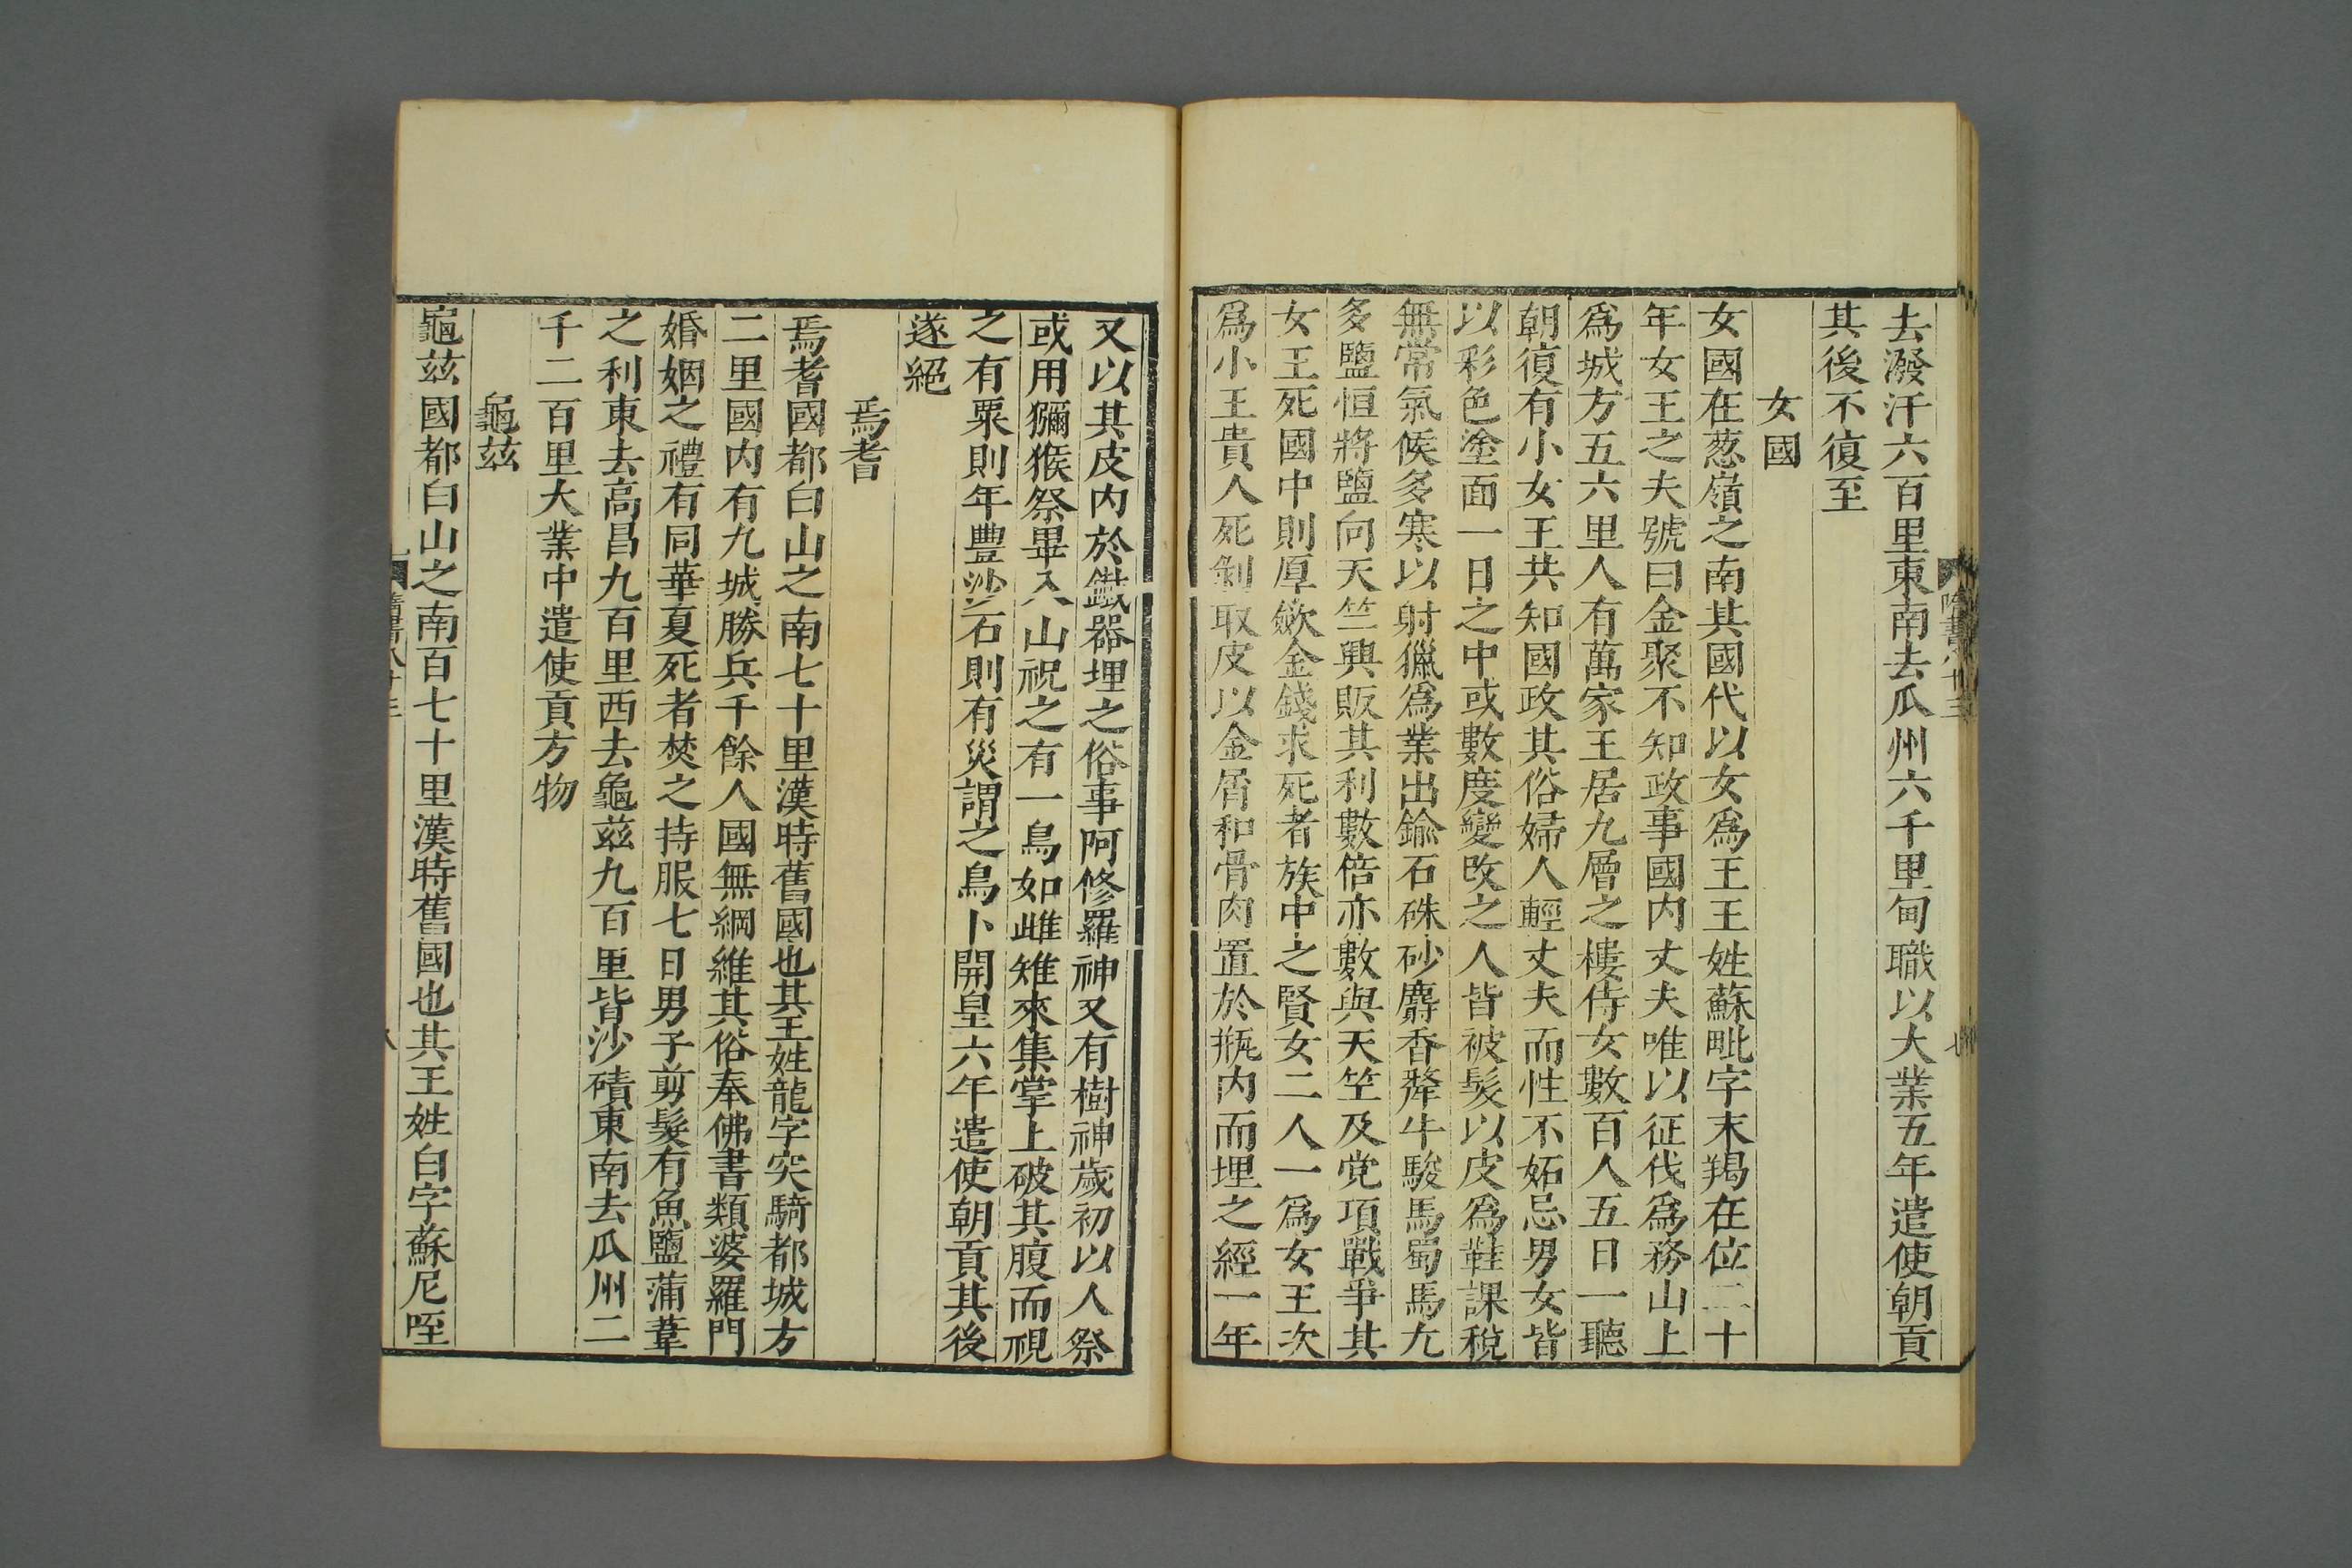 去潑汗六百里東南去瓜州六千里甸職以大業五年遣使朝貢
其後不復至
女國
女國在葱嶺之南其國代以女爲王王姓蘇毗字末羯在位二十
年女王之夫號曰金聚不知政事國内丈夫唯以征伐爲務山上
爲城方五六里人有萬家王居九層之樓侍女數百人五日一聽
朝復有小女王共知國政其俗婦人輕丈夫而性不妬忌男女皆
以彩色塗面一日之中或數度變改之人皆被髮以皮爲鞋課稅
無常氣候多寒以射獵爲業出鍮石硃砂麝香犛牛駿馬蜀馬尤
多鹽恒將鹽向天竺興販其利數倍亦數與天竺及党項戰爭其
女王死國中則厚斂金錢求死者族中之賢女二人一爲女王次
爲小王貴人死剝取皮以金屑和骨肉置於瓶内而埋之經一年
又以其皮内於鐵器埋之俗事阿修羅神又有樹神歲初以人祭
或用獼猴祭畢入山祝之有一鳥如雌雉來集掌上破其腹而視
之有粟則年豐沙石則有災謂之鳥卜開皇六年遣使朝貢其後
遂絕
焉耆
焉耆國都白山之南七十里漢時舊國也其王姓龍字突騎都城方
二里國内有九城勝兵千餘人國無綱維其俗奉佛書類婆羅門
婚姻之禮有同華夏死者焚之持服七日男子剪髮有魚鹽蒲葦
之利東去高昌九百里西去龜兹九百里皆沙磧東南去瓜州二
千二百里大業中遣使貢方物
龜兹
龜兹國都白山之南百七十里漢時舊國也其王姓白字蘇尼咥